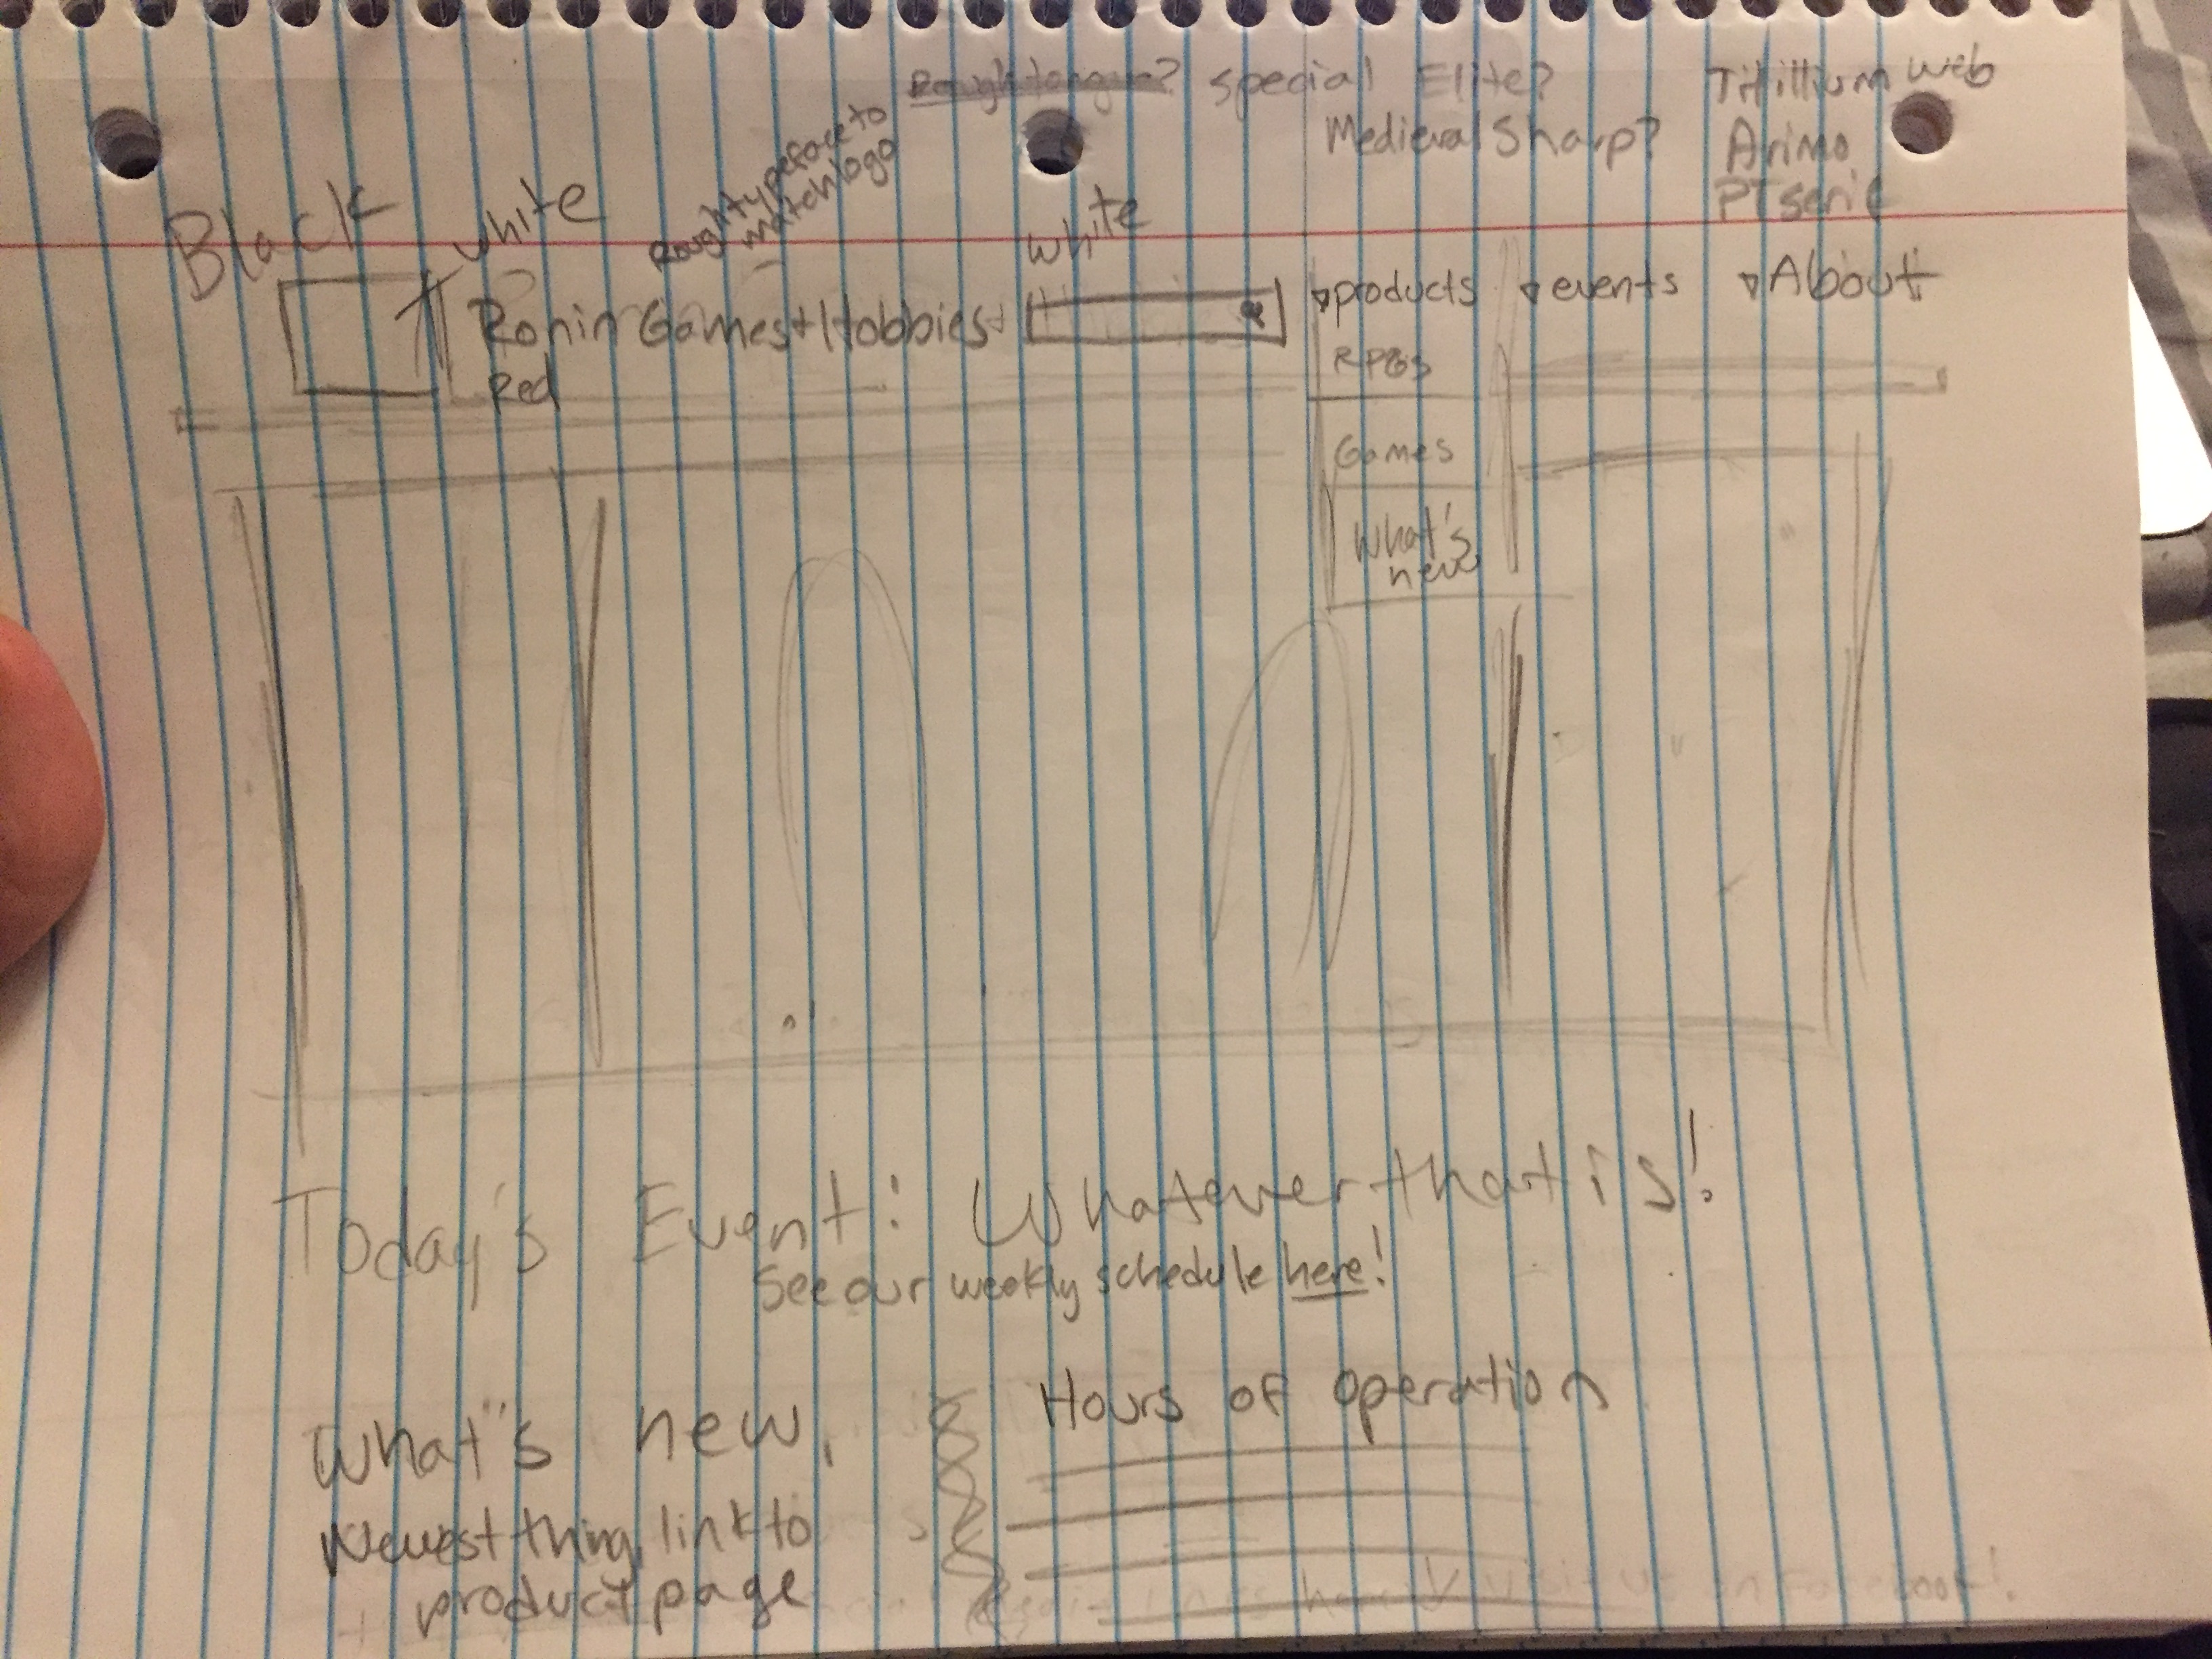 Roughtongue? Special Elite? Titillium Web
Medieval Sharp? Arimo
PT serif
Black white Rough typeface to
match logo
white
Ronin Games+Hobbies
Red
▿products ▿events ▿About
RPGs
Games
What's
new
Today's Event: Whatever that is!
See our weekly schedule here!
What's new
Newest thing, link to
product page
Hours of operation
visit us on Facebook!